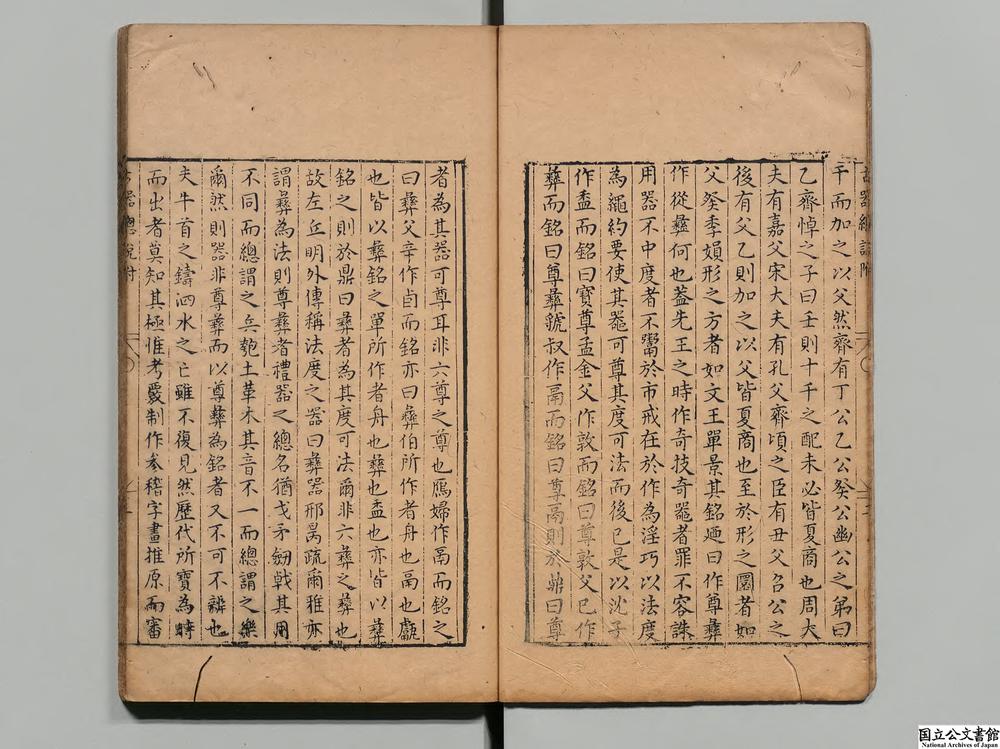 干而加之以父然齊有丁公乙公癸公幽公之弟曰
乙齊悼之子曰壬則十干之配未必皆夏商也周大
夫有嘉父宋大夫有孔父齊頃之臣有丑父召公之
後有父乙則加之以父皆夏商也至於形之圜者如
父癸季娟形之方者如文王單景其銘廼曰作尊彝
作從彝何也蓋先王之時作奇技奇噐者罪不容誅
用器不中度者不鬻於市戒在於作為淫巧以法度
為繩約要使其噐可尊其度可法而後已是以沈子
作盉而銘曰寶尊盂金父作敦而銘曰尊敦父己作
彝而銘曰尊彝虢叔作鬲而銘曰尊鬲則於鼎曰尊
者為其器可尊耳非六尊之尊也鴈婦作鬲而銘之
曰彝父辛作卣而銘亦曰彝伯所作者舟也鬲也甗
也皆以彝銘之單所作者舟也彝也盉也亦皆以彝
銘之則於鼎曰彝者為其度可法爾非六彝之彝也
故左丘明外傳稱法度之器曰彝器邢昺疏爾雅亦
謂彝為法則尊彝者禮器之總名猶戈矛劒戟其用
不同而總謂之兵匏土革木其音不一而總謂之樂
爾然則器非尊彝而以尊彝為銘者又不可不辨也
夫牛首之鑄泗水之亡雖不復見然歷代所寶為時
而出者莫知其極惟考覈制作参稽字畫推原而審
古器總說附